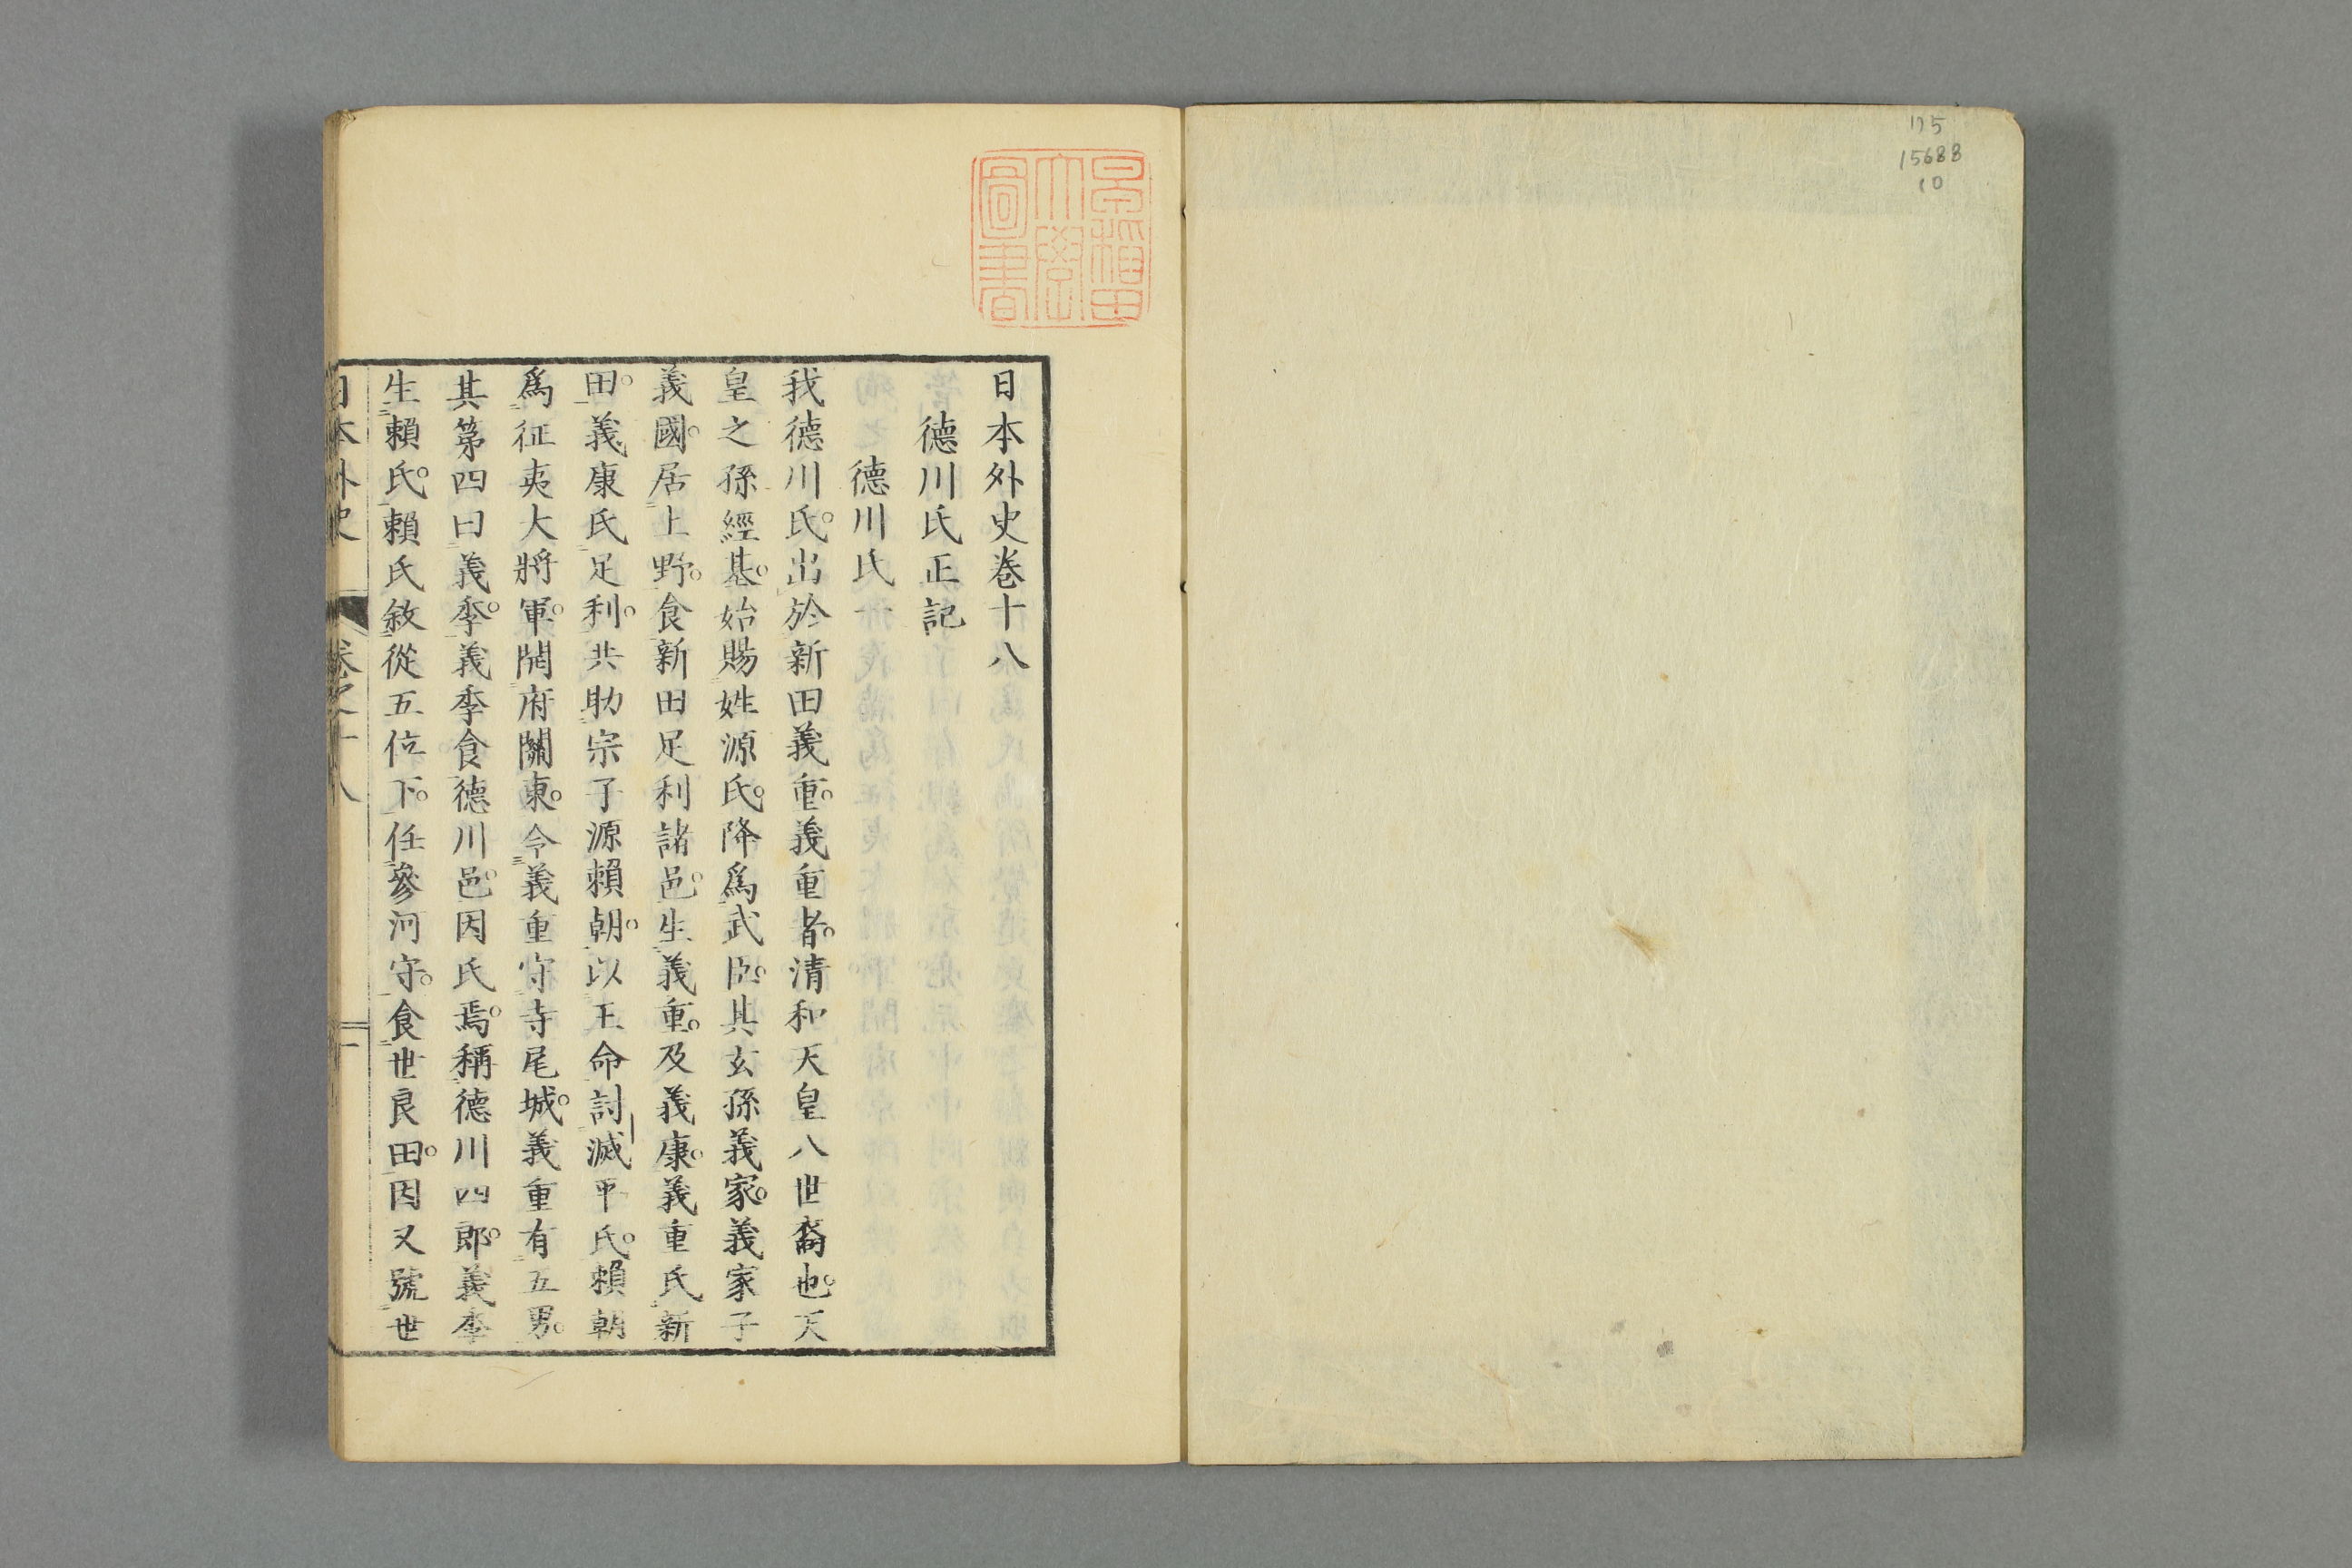 リ5
15688
10
早稲田
大學
圖書
日本外史卷十八
德川氏正記
德川氏一
我德川氏。出於新田義重。義重者。清和天皇八世裔也。天
皇之孫經基。始賜姓源氏。降爲武臣。其玄孫義家。義家子
義國。居上野。食新田足利諸邑。生義重。及義康。義重氏新
田。義康氏足利。共助宗子源賴朝。以王命討滅平氏。賴朝
爲征夷大將軍。開府關東。令義重守寺尾城。義重有五男。
其第四曰義季。義季食德川邑。因氏焉。稱德川四郎。義季
生賴氏。賴氏敘從五位下。任參河守。食世良田。因又號世
日本外史 卷之十八 一